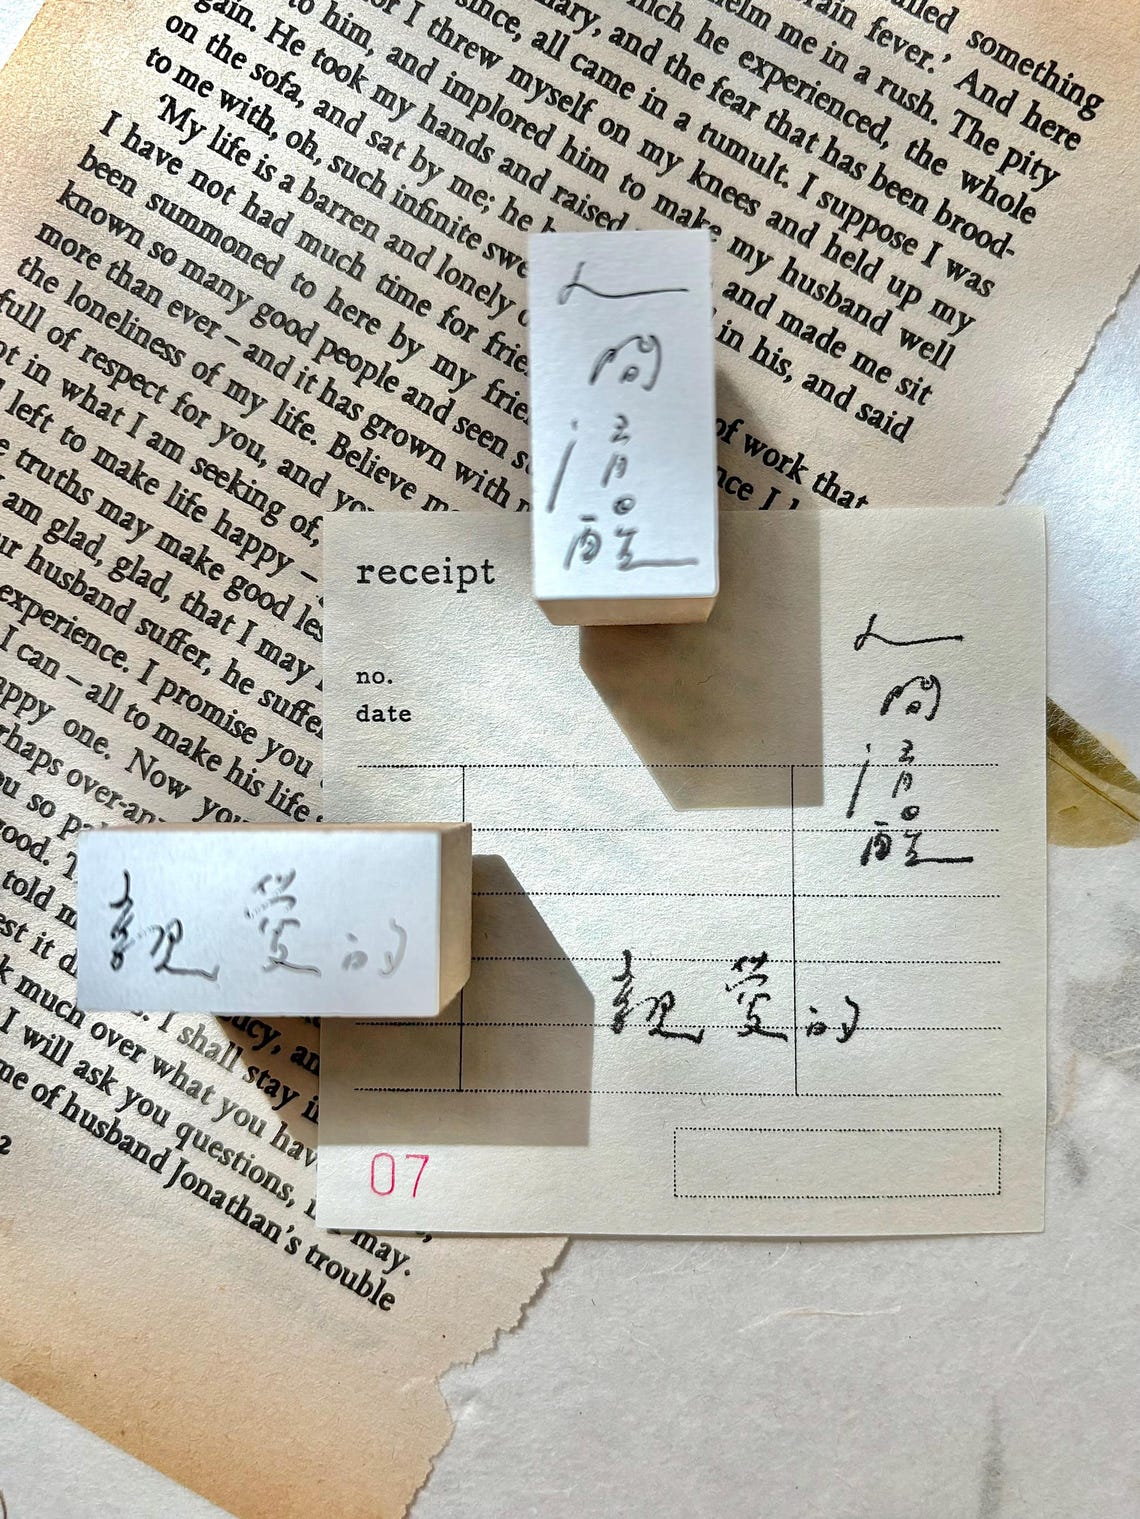 alled something
rain fever.' And here
helm me in a rush. The pity
which he experienced, the whole
nary, and the fear that has been brood-
since, all came in a tumult. I suppose I was
not I threw myself on my knees and held up my
to him, and implored him to make my husband well
gain. He took my hands and raised and made me sit
on the sofa, and sat by me; he in his, and said
to me with, oh, such infinite swe
'My life is a barren and lonely of work that
I have not had much time for frie nce I
been summoned to here by my frie
known so many good people and seen
more than ever – and it has grown with
the loneliness of my life. Believe me
full of respect for you, and you
ot in what I am seeking of,
left to make life happy –
truths may make good les
am glad, glad, that I may
ur husband suffer, he suffe
experience. I promise you
I can – all to make his life
appy one. Now you
rhaps over-an
ou so pa
good. T
told m
est it d
k much over what you hav
I shall stay i
ucy, an
I will ask you questions,
may.
me of husband Jonathan's trouble
2
人間清醒
receipt
no.
date
人間清醒
親愛的
親愛的
07